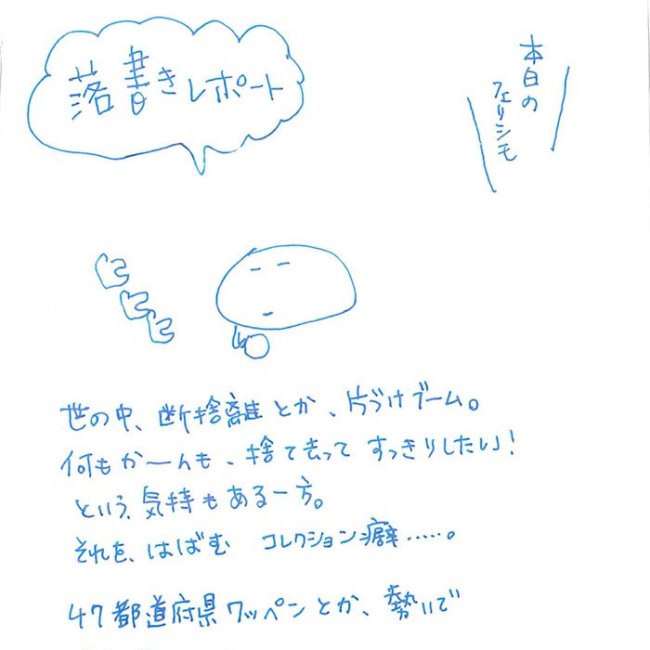 落書きレポート
本日の
フェリシモ
世の中、断捨離とか、片づけブーム。
何もかーんも、捨て去ってすっきりしたい!
という、気持もある一方。
それを、はばむ コレクション癖……。
47都道府県ワッペンとか、勢いで